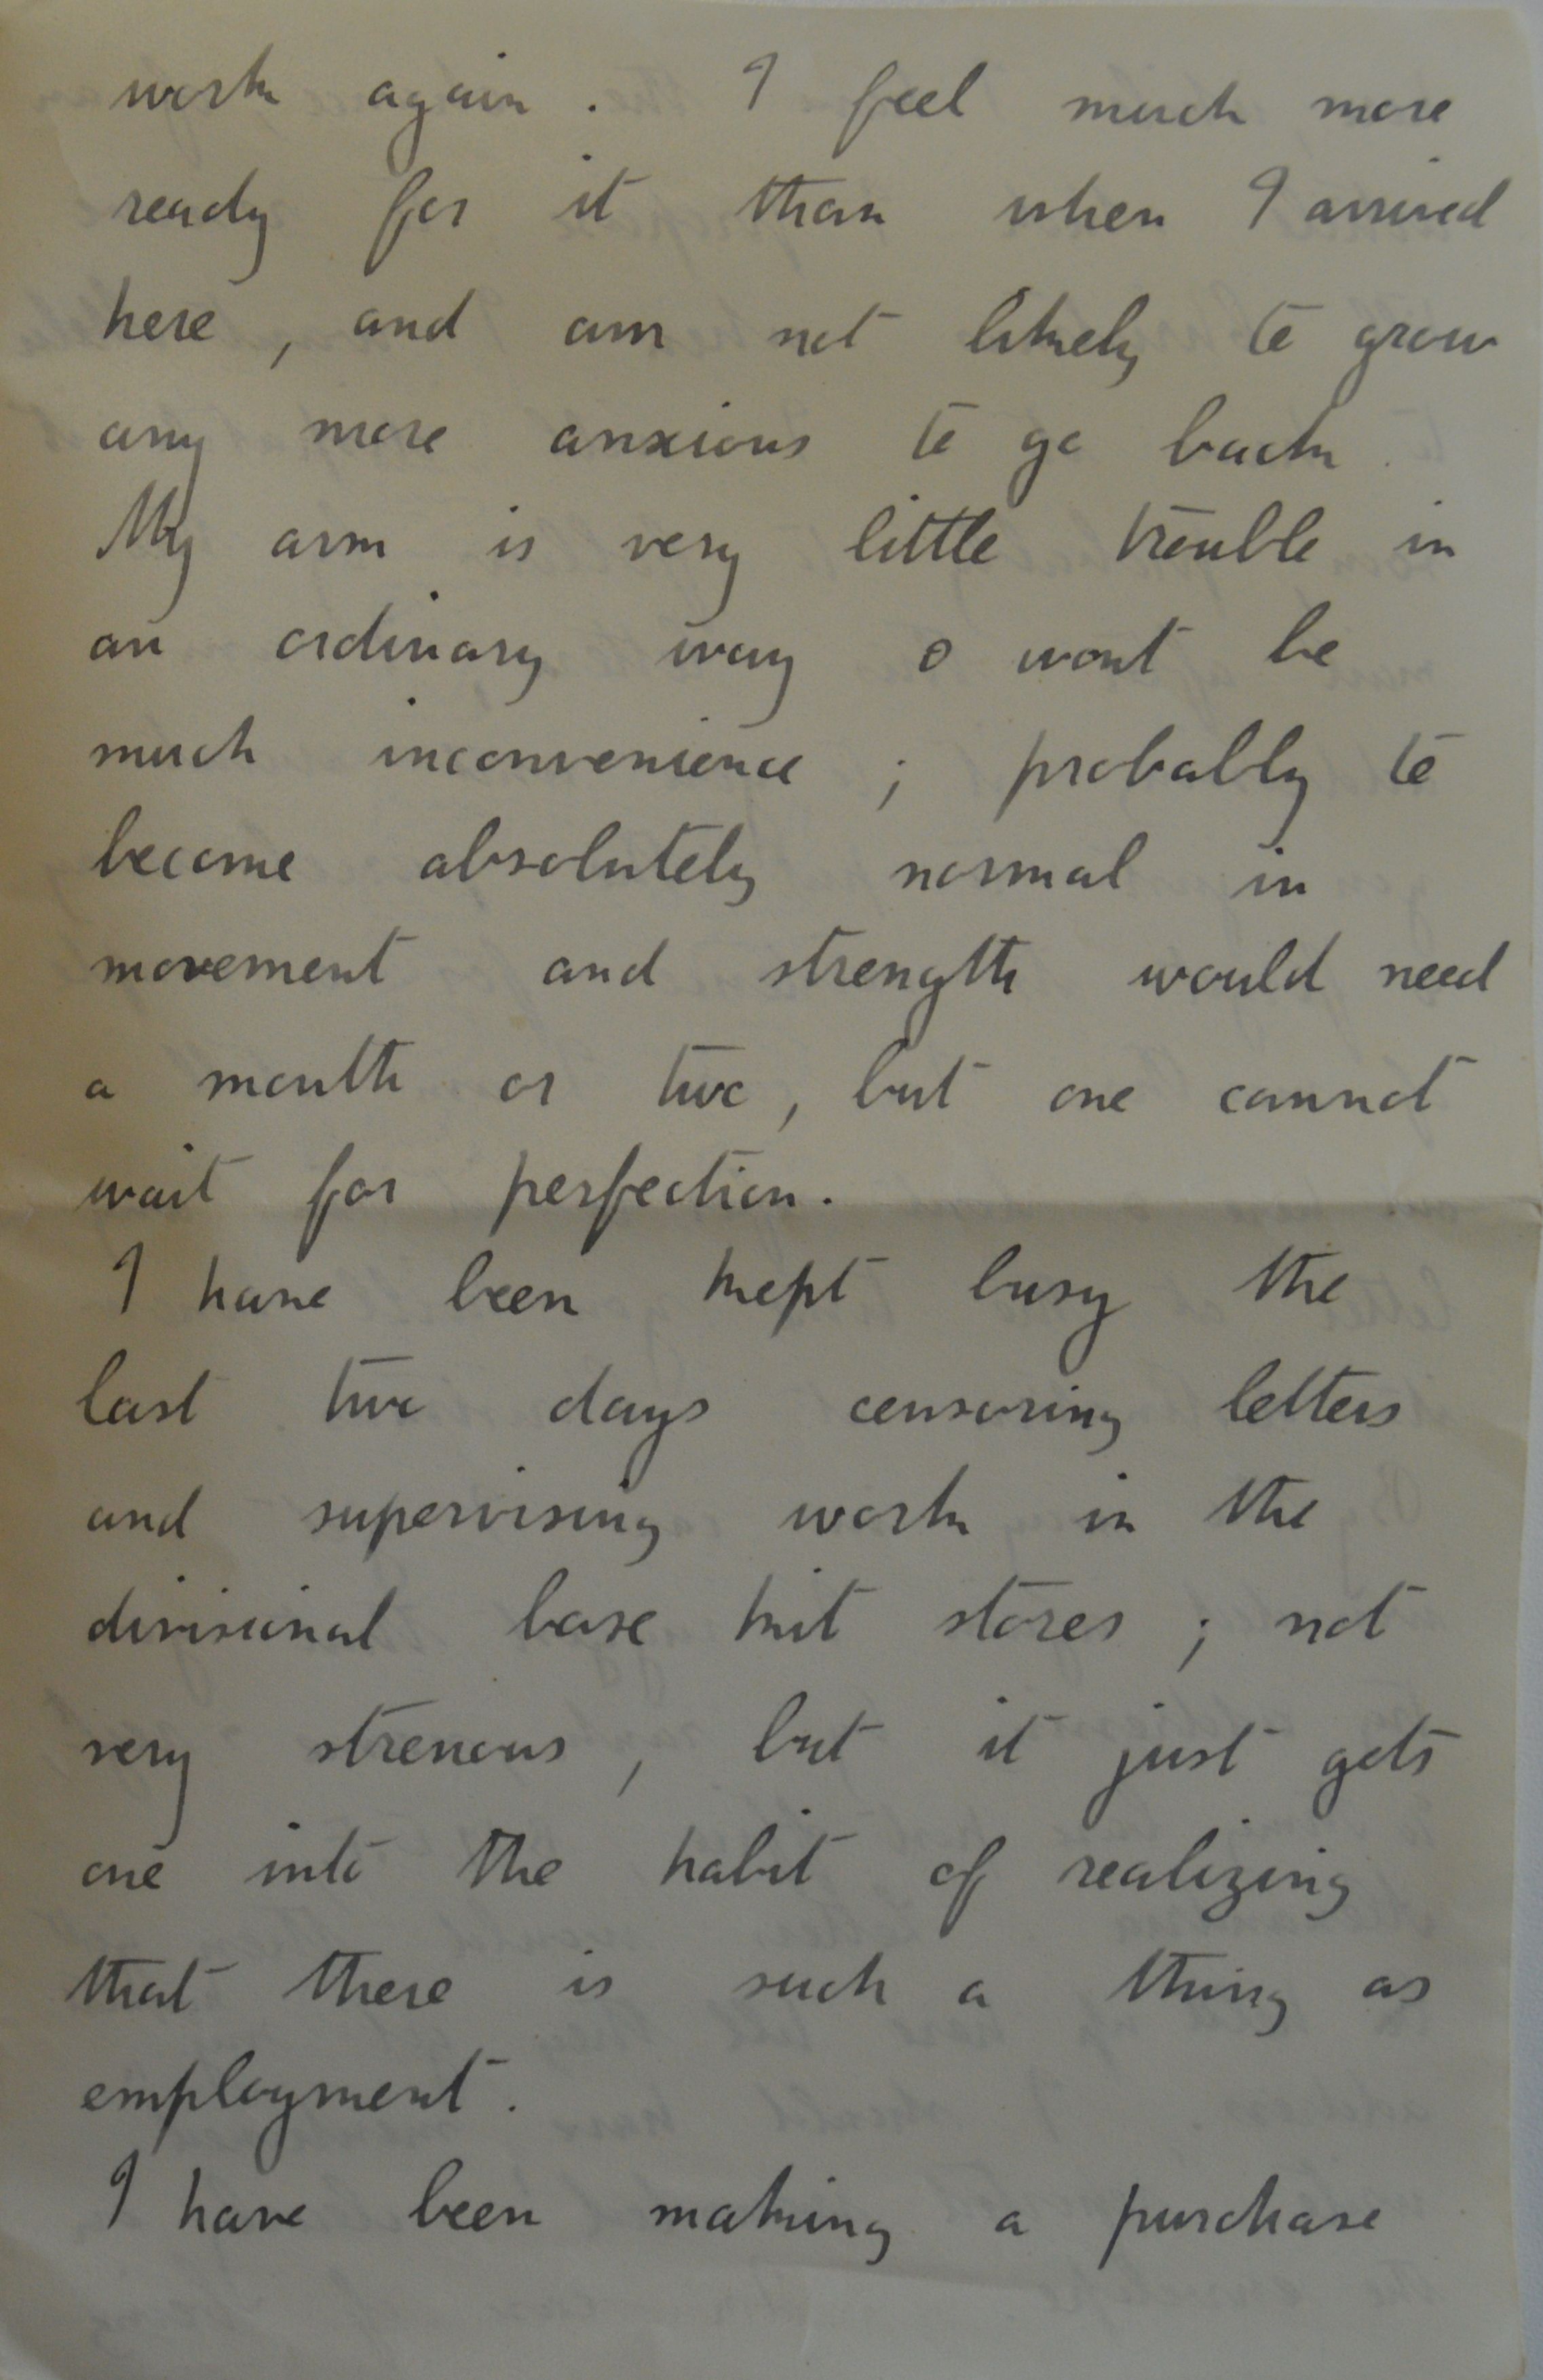 work again. I feel much more
ready for it than when I arrived
here, and am not likely to grow
any more anxious to go back.
My arm is very little trouble in
an ordinary way & wont be
much inconvenience; probably to
become absolutely normal in
movement and strength would need
a month or two, but one cannot
wait for perfection.
I have been kept busy the
last two days censoring letters
and supervising work in the
divisional base kit stores; not
very strenous, but it just gets
one into the habit of realizing
that there is such a thing as
employment.
I have been making a purchase